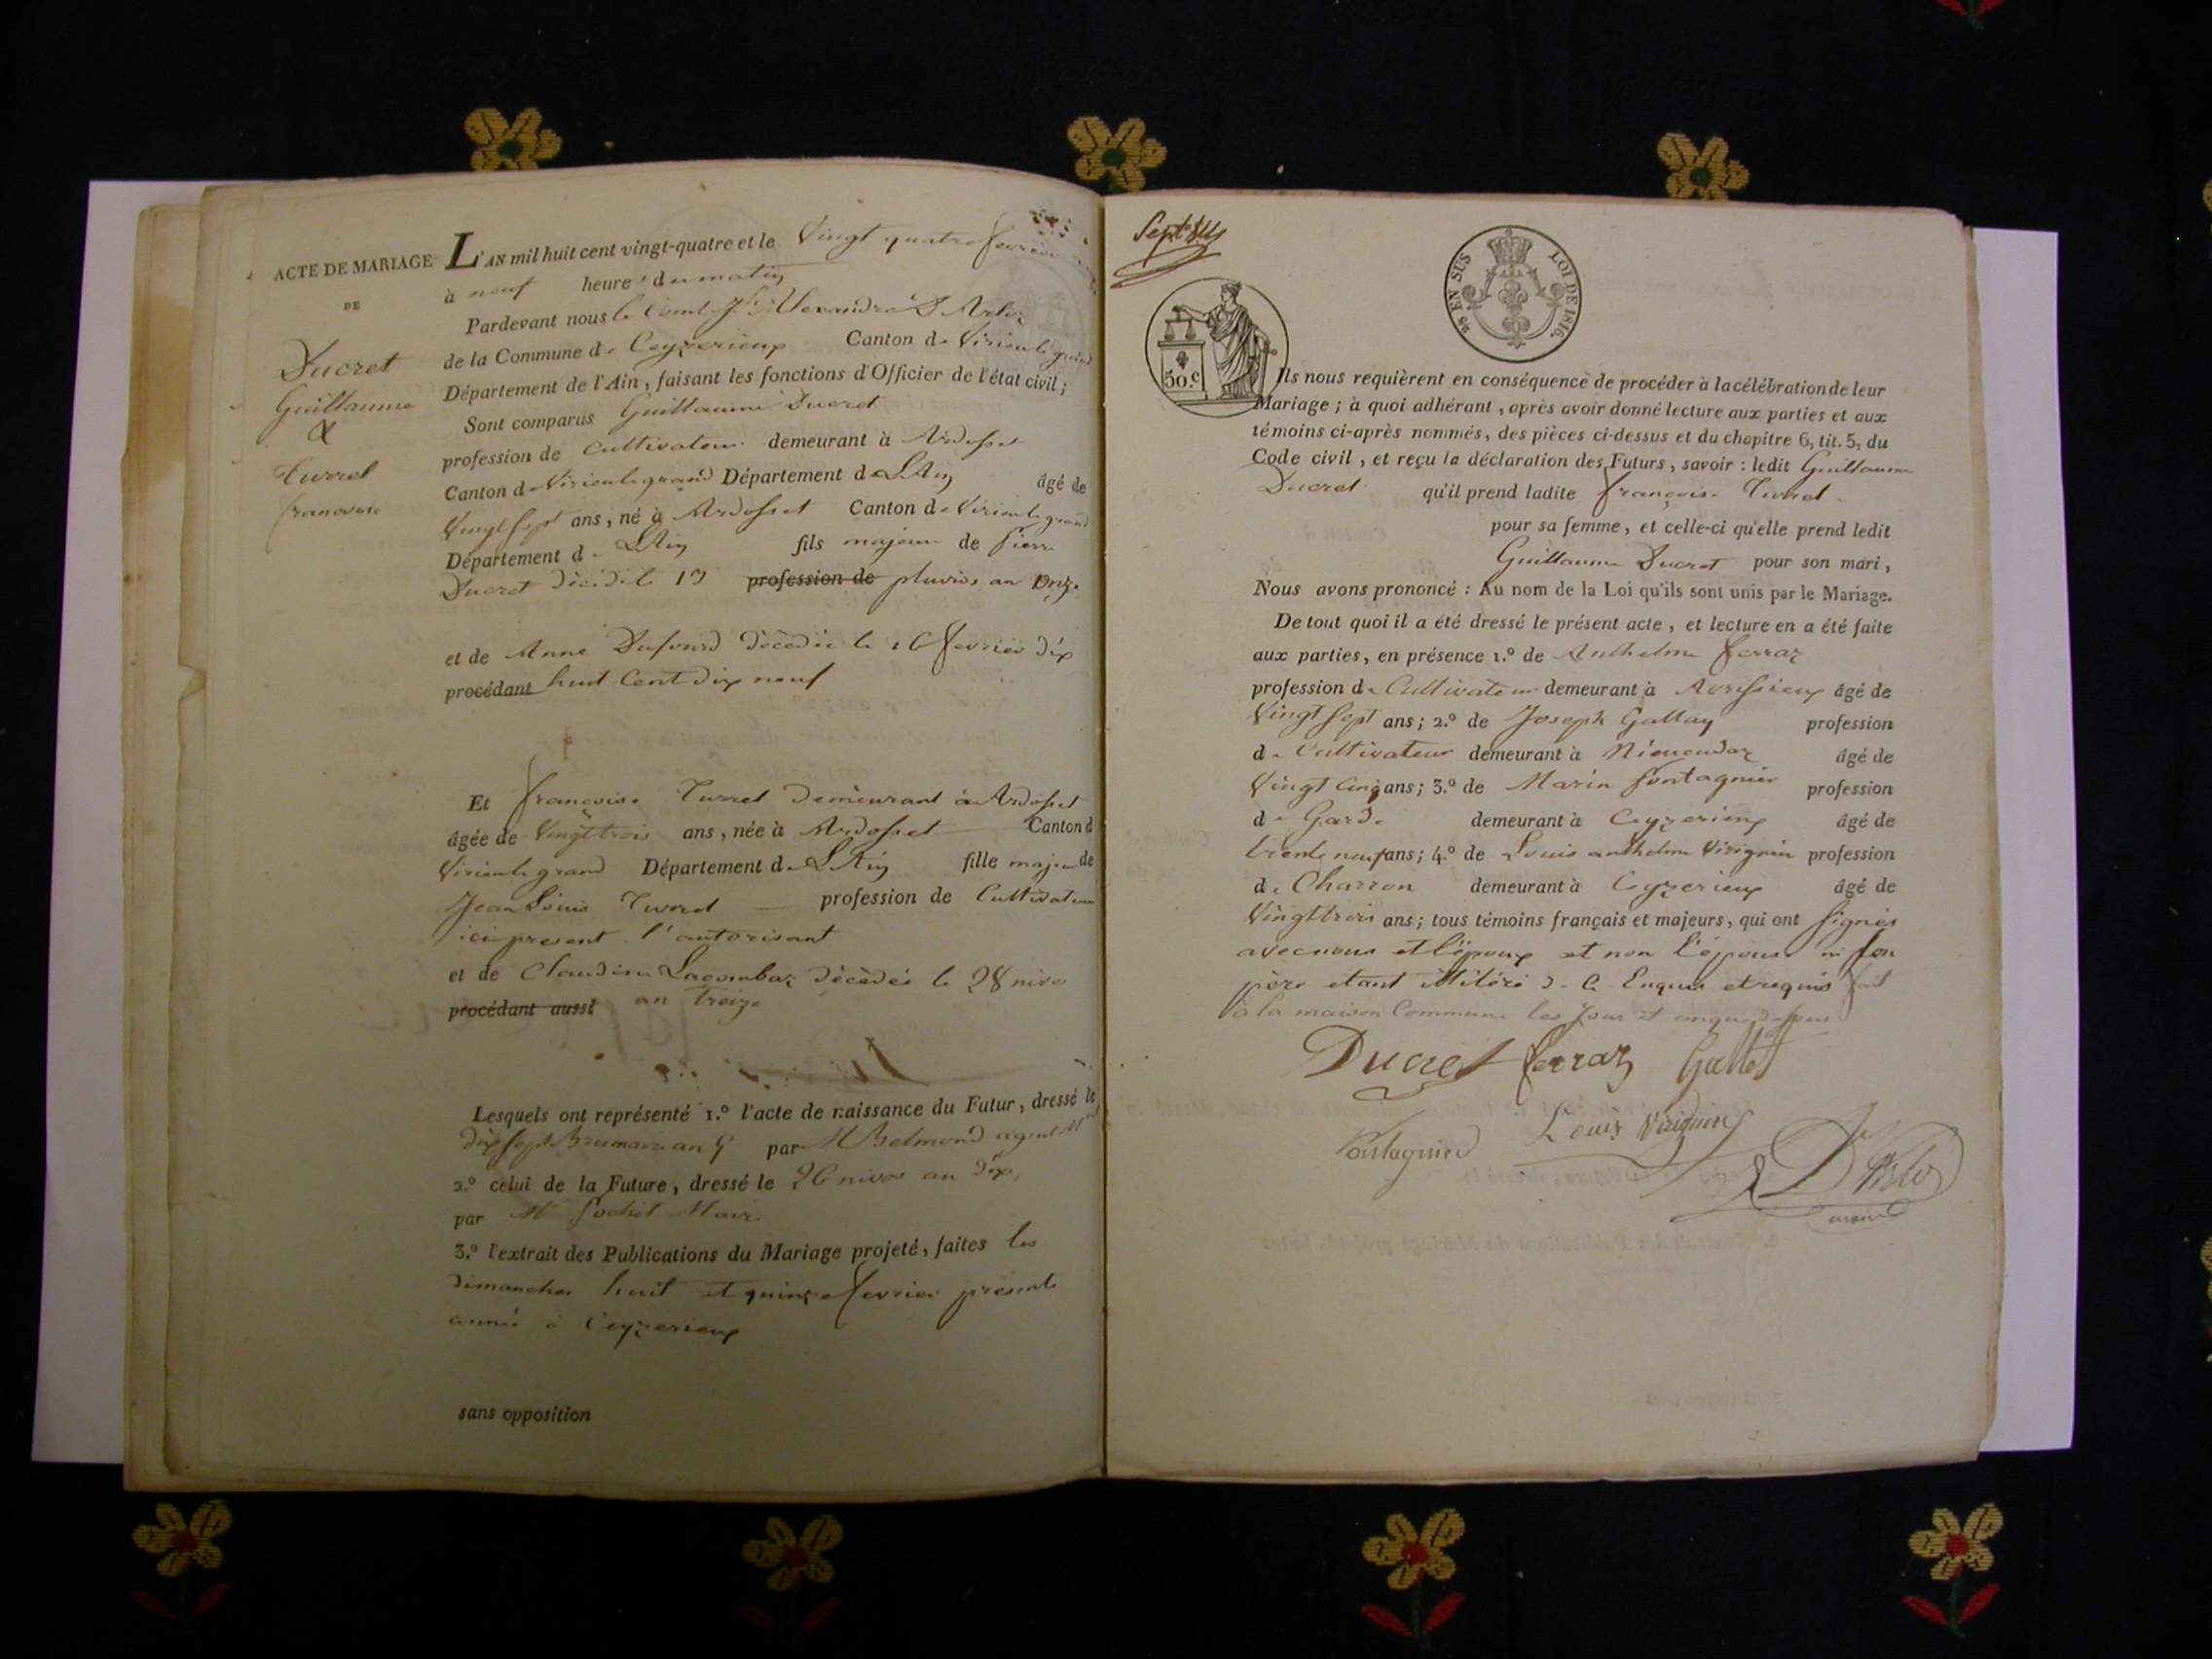 ACTE DE MARIAGE
DE
Ducret
Guillaume
&
Turrel
françoise
L'AN mil huit cent vingt-quatre et le Vingt quatre fevrier
à neuf heure du matin
Pardevant nous le Comt Jh Alexandre D'Arloz
de la Commune de Ceyzerieux Canton de Virieu le grand
Département de l'Ain, faisant les fonctions d'Officier de l'état civil;
Sont comparus Guillaume Ducret
profession de cultivateur demeurant à Ardosset
Canton de Virieu le grand Département de L'Ain âgé de
Vingt sept ans, né à Ardosset Canton de Virieu le grand
Département de L'Ain fils majeur de Pierre
Ducret décédé le 19 profession de pluvios an onze
et de Anne Dufourd décédée le 16 fevrier dix
procédant huit Cent dix neuf
Et françoise Turrel demeurant à Ardosset
âgée de Vingt trois ans, née à Ardosset Canton d
Virieu le grand Département de L'Ain fille majeure de
Jean Louis Turrel profession de Cultivateur
ici present l'autorisant
et de Claudine Lacombaz décédée le 28 nivos
procédant aussi an treize
Lesquels ont représenté 1.º l'acte de naissance du Futur, dressé le
dix sept Brumaire an 5 par M Belmond agent
2.º celui de la Future, dressé le 26 nivos an dix,
par M Pochet Maire
3.º l'extrait des Publications du Mariage projeté, faites les
dimanches huit et quinze fevrier presente
année à Ceyzerieux
sans opposition
25 EN SUS LOI DE 1816.
50.c
Ils nous requièrent en conséquence de procéder à la célébration de leur
Mariage; à quoi adhérant, après avoir donné lecture aux parties et aux
témoins ci-après nommés, des pièces ci-dessus et du chapitre 6, tit. 5, du
Code civil, et reçu la déclaration des Futurs, savoir: ledit Guillaume
Ducret qu'il prend ladite françoise Turrel
pour sa femme, et celle-ci qu'elle prend ledit
Guillaume Ducret pour son mari,
Nous avons prononcé: Au nom de la Loi qu'ils sont unis par le Mariage.
De tout quoi il a été dressé le présent acte, et lecture en a été faite
aux parties, en présence 1.º de Anthelme ferraz
profession de Cultivateur demeurant à Avrissieux âgé de
Vingt sept ans; 2.º de Joseph Gallay profession
de Cultivateur demeurant à âgé de
Vingt cinq ans; 3.º de Marin fontagnier profession
de Garde demeurant à Ceyzerieux âgé de
trente neuf ans; 4.º de Louis anthelme Virignin profession
de Charron demeurant à Ceyzerieux âgé de
Vingt trois ans; tous témoins français et majeurs, qui ont signés
avec nous et l'époux et non l'épouse ni son
père etant illitéré de ce Enquis et requis fait
à la maison Commune les Jour et an que dessus
Ducret ferraz Gallet
Louis Virignin
D'Arloz